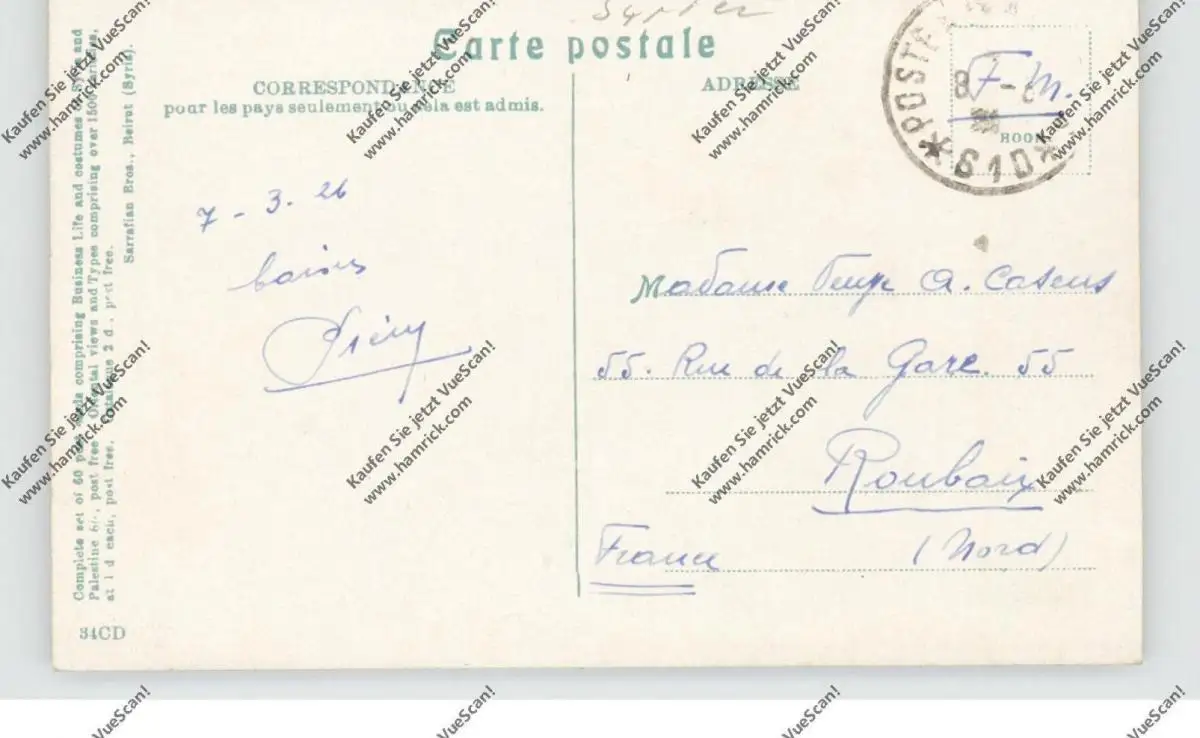 Carte postale
CORRESPONDANCE
pour les pays seulement ou cela est admis.
ADRESSE
F.M.
*POSTE
8
*610*
7 - 3. 26
Madame A. Casens
55. Rue de la Gare. 55
Roubaix
France (Nord)
Complete set of 60 comprising Business Life and costumes and
Palestine post free. Oriental views and Types comprising over 1500 varieties,
at 1 d each, post free. Catalogue 2 d., post free.
Sarrafian Bros., Beirut (Syria).
34CD
Kaufen Sie jetzt VueScan!
www.hamrick.com
Kaufen Sie jetzt VueScan!
www.hamrick.com
Kaufen Sie jetzt VueScan!
www.hamrick.com
Kaufen Sie jetzt VueScan!
www.hamrick.com
Kaufen Sie jetzt VueScan!
www.hamrick.com
Kaufen Sie jetzt VueScan!
www.hamrick.com
Kaufen Sie jetzt VueScan!
www.hamrick.com
Kaufen Sie jetzt VueScan!
www.hamrick.com
VueScan!
VueScan!
VueScan!
VueScan!